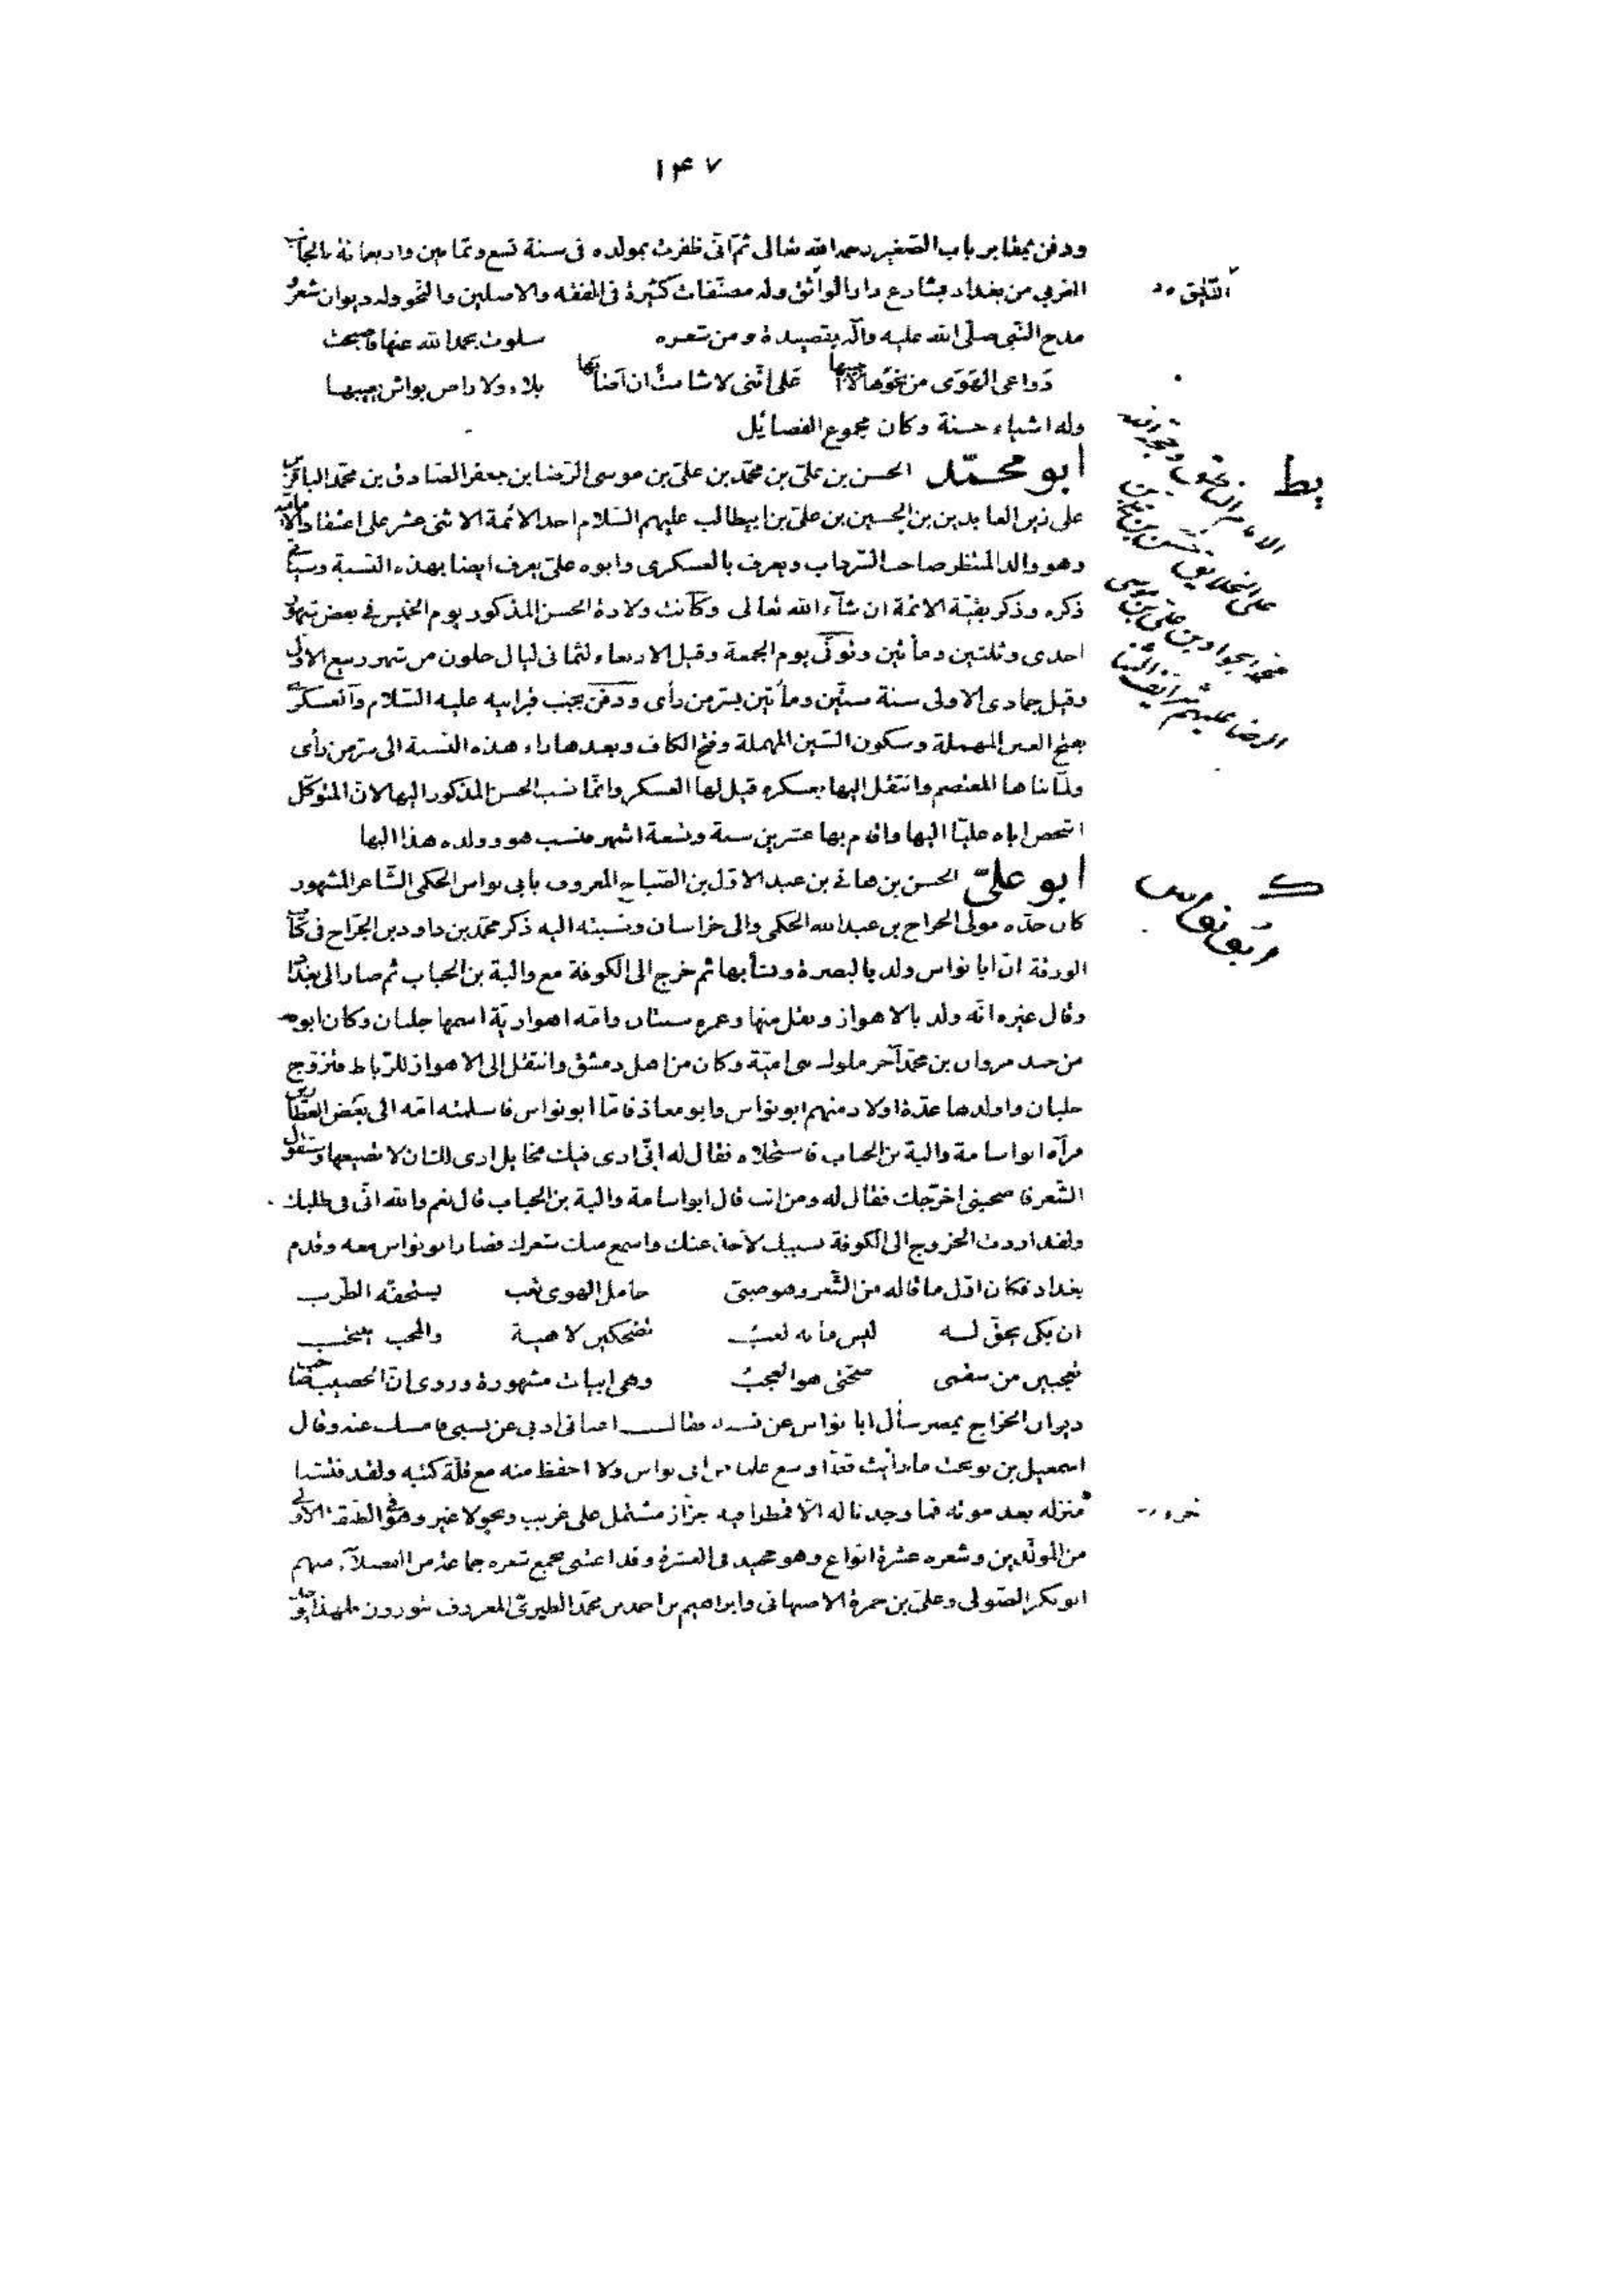 ١۴٧
ودفن بمقابر باب الصغير رحمه الله تعالى ثم انى ظفرت بمولده فى سنة تسع وثمانين واربعمائة بالجانب
الغربى من بغداد بشارع دار الرقيق وله مصنفات كثيرة فى الفقه والاصلين والنحو وله ديوان شعر
مدح النبى صلى الله عليه وآله بقصيدة ومن شعره سلوت بحمد الله عنها فاصبحت
دواعى الهوى من نحوها لا اجيبها على اننى لا شامت ان اصابها بلاء ولا راض بواش يعيبها
وله اشياء حسنة وكان مجموع الفضائل
يط
ابو محمّد الحسن بن على بن محمّد بن على بن موسى الرضا بن جعفر الصادق بن محمّد الباقر بن
على زين العابدين بن الحسين بن على بن ابيطالب عليهم السّلام احد الائمة الاثنى عشر على اعتقاد الامامية
وهو والد المنتظر صاحب السّرداب ويعرف بالعسكرى وابوه على يعرف ايضا بهذه النسبة وسياتى
ذكره وذكر بقيّة الائمة ان شآء الله تعالى وكانت ولادة الحسن المذكور يوم الخميس فى بعض شهور
احدى وثلثين ومأتين وتوفّى يوم الجمعة وقيل الاربعاء لثمانى ليال خلون من شهر ربيع الاول
وقيل جمادى الاولى سنة ستّين ومأتين بسرمن رأى ودفن بجنب قبر ابيه عليه السّلام والعسكرى
بفتح العين المهملة وسكون السّين المهملة وفتح الكاف وبعدها راء هذه النسبة الى سرّ من رأى
ولمّا بناها المعتصم وانتقل اليها بعسكره قيل لها العسكر وانّما نسب الحسن المذكور اليها لان المتوكّل
اشخص اباه عليّا اليها واقام بها عشرين سنة وتسعة اشهر فنسب هو وولده هذا اليها
ک
ابو علىّ الحسن بن هانى بن عبد الاوّل بن الصّباح المعروف بابى نواس الحكمى الشّاعر المشهور
ابو نواس
كان جدّه مولى الجراح بن عبد الله الحكمى والى خراسان ونسبته اليه ذكر محمّد بن داود بن الجرّاح فى كتاب
الورقة انّ ابا نواس ولد بالبصرة ونشأ بها ثم خرج الى الكوفة مع والبة بن الحباب ثم صار الى بغداد
وقال غيره انّه ولد بالاهواز ونقل منها وعمره سنتان وامّه اهوازيّة اسمها جلبان وكان ابوه
من جند مروان بن محمّد آخر ملوك بنى اميّة وكان من اهل دمشق وانتقل الى الاهواز للرّباط فتزوّج
جلبان واولدها عدّة اولاد منهم ابو نواس وابو معاذ فامّا ابو نواس فاسلمته امّه الى بعض العطّارين
فرآه ابو اسامة والبة بن الحباب فاستحلاه فقال له انّى ارى فيك مخايل ارى ان لا تضيعها وستقول
الشّعر فاصحبنى اخرّجك فقال له ومن انت قال ابو اسامة والبة بن الحباب قال نعم والله انّى فى طلبك
ولقد اردت الخروج الى الكوفة بسببك لآخذ عنك واسمع منك شعرك فصار ابو نواس معه وقدم
بغداد فكان اوّل ما قاله من الشّعر وهو صبىّ حامل الهوى تعب يستخفّه الطّرب
ان بكى يحقّ له ليس ما به لعب تضحكين لاهية والمحب ينتحب
تعجبين من سقمى صحّتى هو العجب وهى ابيات مشهورة وروى انّ الخصيب صاحب
ديوان الخراج بمصر سأل ابا نواس عن نسبه فقال اغنانى ادبى عن نسبى فامسك عنه وقال
اسمعيل بن نوبخت ما رأيت قطّ اوسع علما من ابى نواس ولا احفظ منه مع قلّة كتبه ولقد فتشنا
منزله بعد موته فما وجدنا له الّا قمطرا فيه جزاز مشتمل على غريب ونحو لا غير وهو فى الطبقة الاولى
من المولّدين وشعره عشرة انواع وهو مجيد فى العشرة وقد اعتنى بجمع شعره جماعة من الفضلآء منهم
ابو بكر الصّولى وعلى بن حمزة الاصبهانى وابراهيم بن احمد بن محمّد الطبرىّ المعروف بتوزون فلهذا يوجد